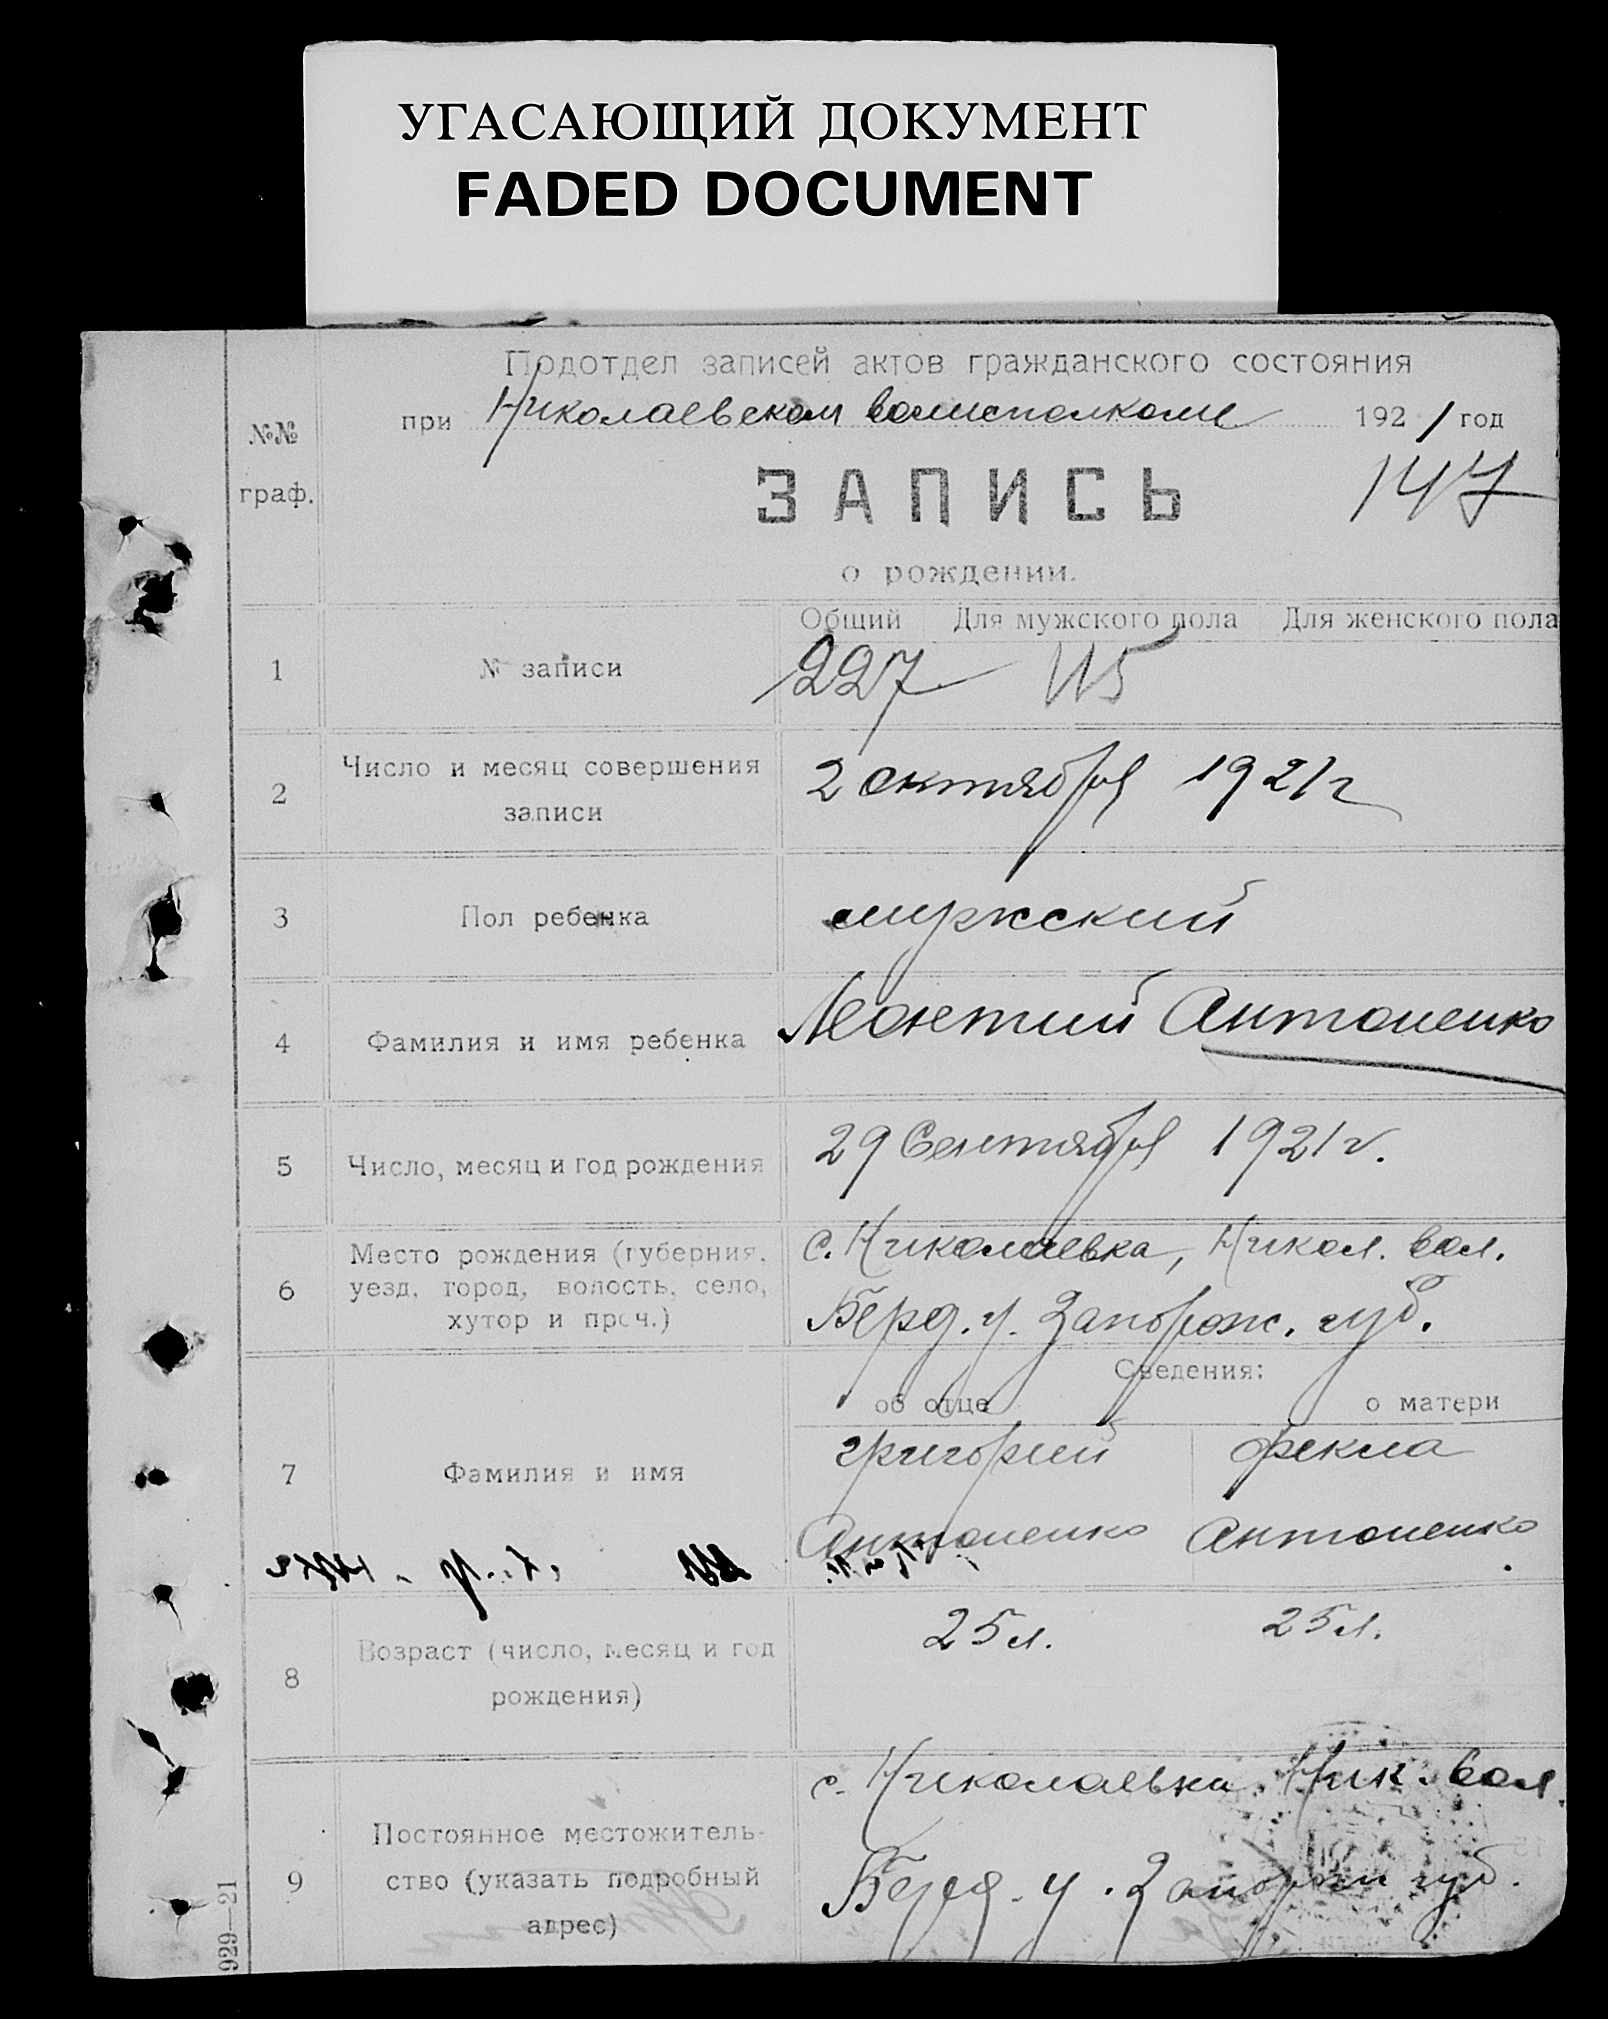 УГАСАЮЩИЙ ДОКУМЕНТ
FADED DOCUMENT
Подотдел записей актов гражданского состояния
при Николаевском волисполкоме 1921 год
№№
граф.
147
ЗАПИСЬ
о рождении.
Общий Для мужского пола Для женского пола
1 № записи 227 115
2 Число и месяц совершения
записи
2 октября 1921 г
3 Пол ребенка мужский
4 Фамилия и имя ребенка Леонтий Антоненко
5 Число, месяц и год рождения 29 Сентября 1921 г.
6 Место рождения (губерния,
уезд, город, волость, село,
хутор и проч.)
с. Николаевка, Никол. вол.
Берд. у. Запорож. губ.
Сведения:
об отце о матери
7 Фамилия и имя
григорий фекла
Антоненко Антоненко
8 Возраст (число, месяц и год
рождения)
25 л. 25 л.
9 Постоянное местожитель-
ство (указать подробный
адрес)
с. Николаевка. Ник. вол.
Берд. у. Запорож губ.
929—21